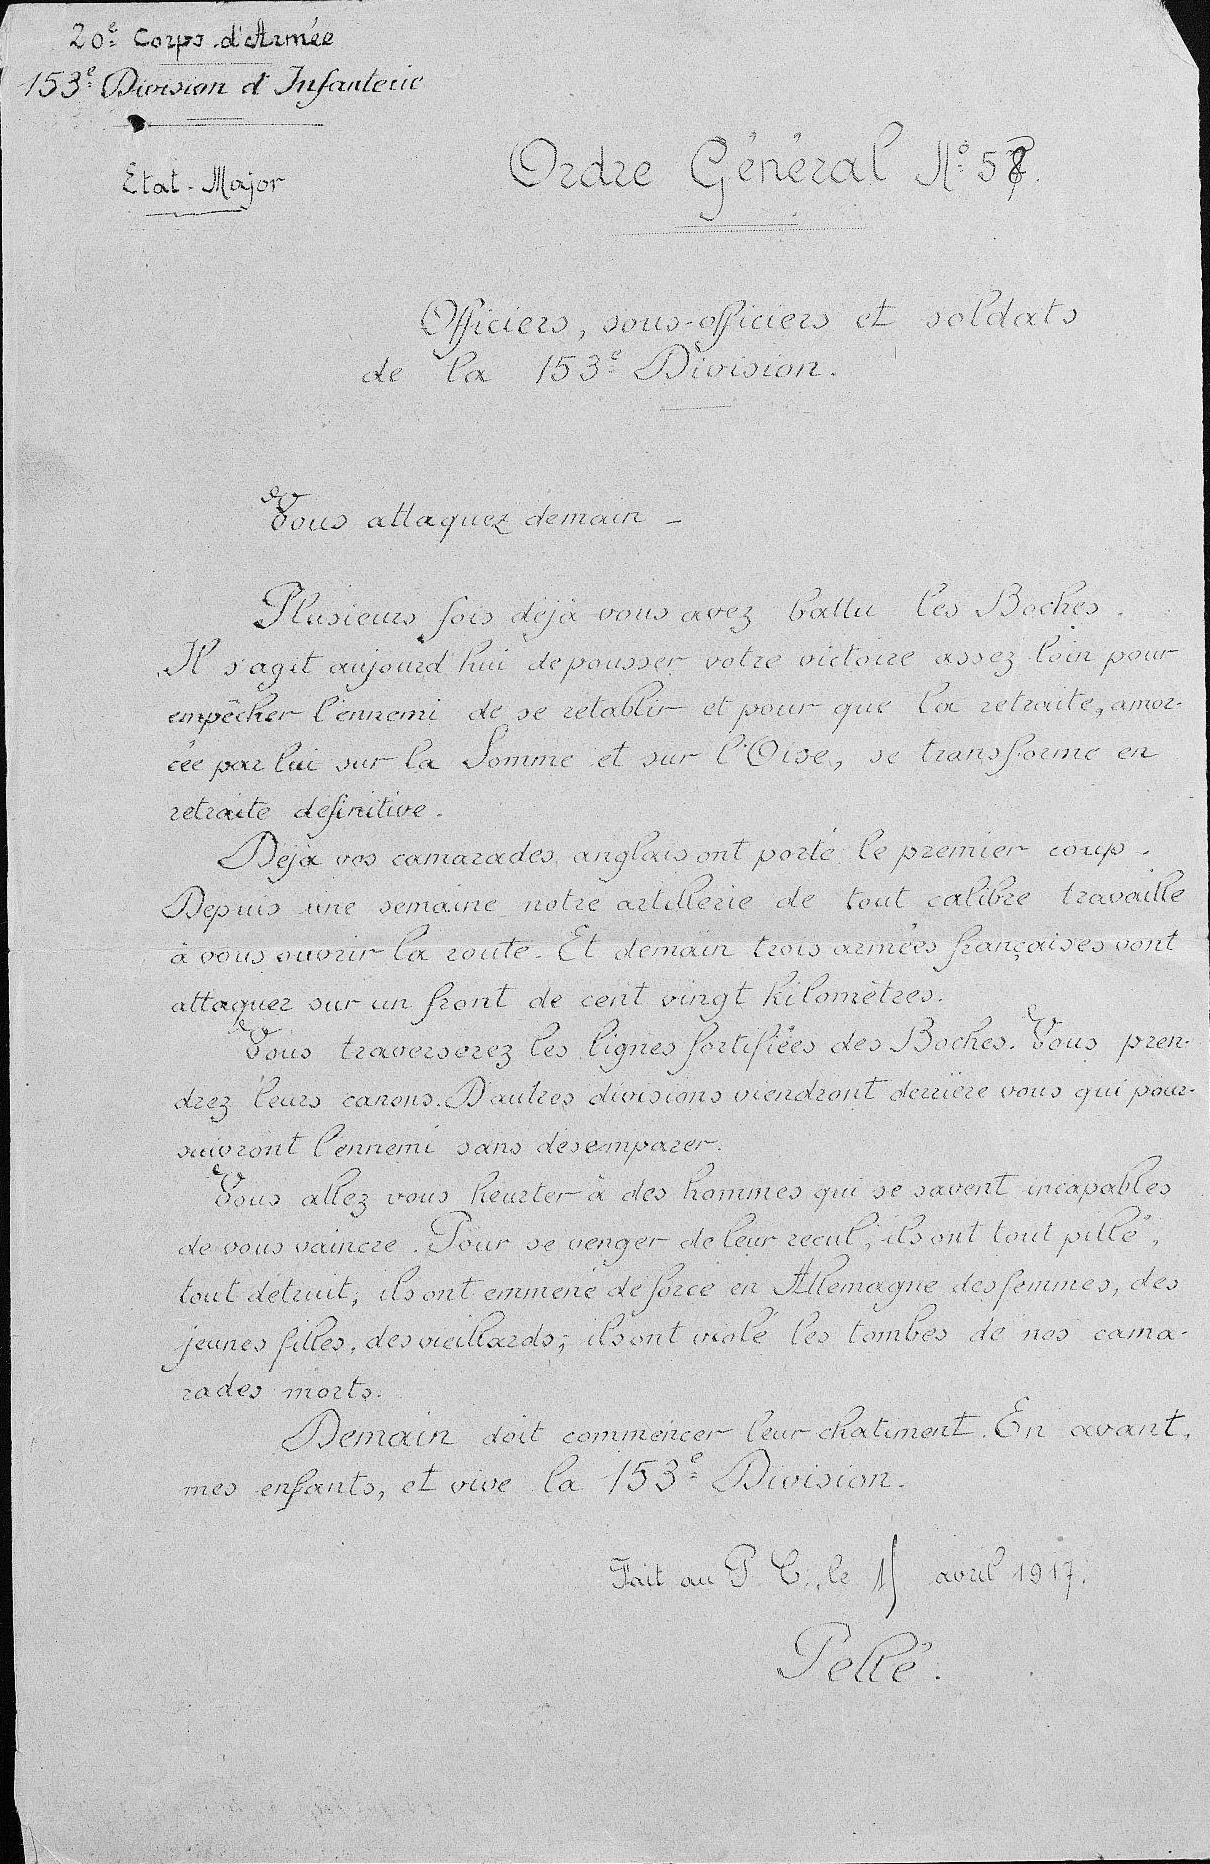 20e Corps d'Armée
153e Division d'Infanterie
Etat-Major
Ordre Général No
Officiers, sous-officiers et soldats
de la 153e Division.
Vous attaquez demain -
Plusieurs fois déjà vous avez battu les Boches.
Il s'agit aujourd'hui de pousser votre victoire assez loin pour
empêcher l'ennemi de se rétablir et pour que la retraite, amor-
cée par lui sur la Somme et sur l'Oise, se transforme en
retraite définitive.
Déjà vos camarades anglais ont porté le premier coup.
Depuis une semaine notre artillerie de tout calibre travaille
à vous ouvrir la route. Et demain trois armées françaises vont
attaquer sur un front de cent vingt kilomètres.
Vous traverserez les lignes fortifiées des Boches. Vous pren-
drez leurs canons. D'autres divisions viendront derrière vous qui pour-
suivront l'ennemi sans désemparer.
Vous allez vous heurter à des hommes qui se savent incapables
de vous vaincre. Pour se venger de leur recul, ils ont tout pillé,
tout détruit; ils ont emmené de force en Allemagne des femmes, des
jeunes filles, des vieillards; ils ont violé les tombes de nos cama-
rades morts.
Demain doit commencer leur chatiment. En avant,
mes enfants, et vive la 153e Division.
Fait au P.C., le 15 avril 1917.
Pellé.